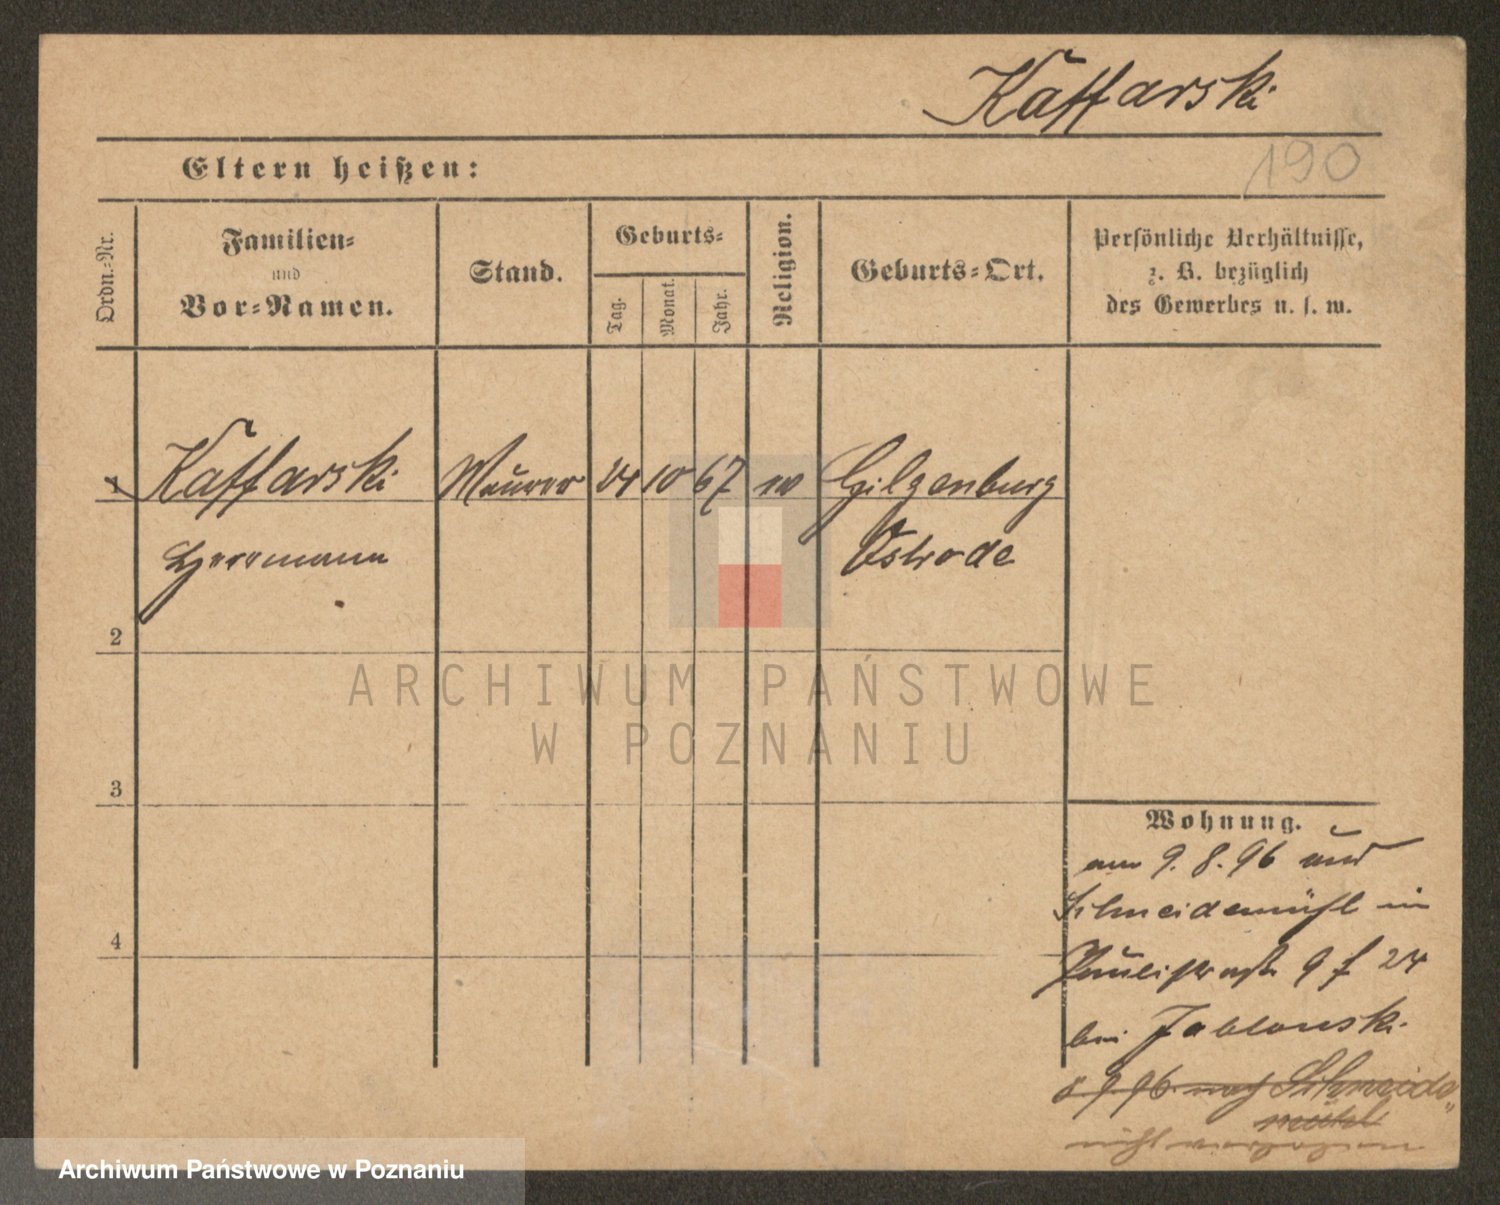 Kaffarski
190
Eltern heißen:
Ordn.-Nr.
Familien-
und
Vor-Namen.
Stand.
Geburts-
Tag.
Monat.
Jahr.
Religion.
Geburts-Ort.
Persönliche Verhältnisse,
z. B. bezüglich
des Gewerbes u. s. w.
1 Kaffarski Maurer 24 10 67 ev Gilgenburg
Herrmann Ostrode
2
3
4
Wohnung.
am 9. 8. 96 aus
Schneidemühl in
Paulistraße 9 f 24
bei Jablonski
8 9 96 nach Schneide
mühl
nicht
ARCHIWUM PAŃSTWOWE
W POZNANIU
Archiwum Państwowe w Poznaniu